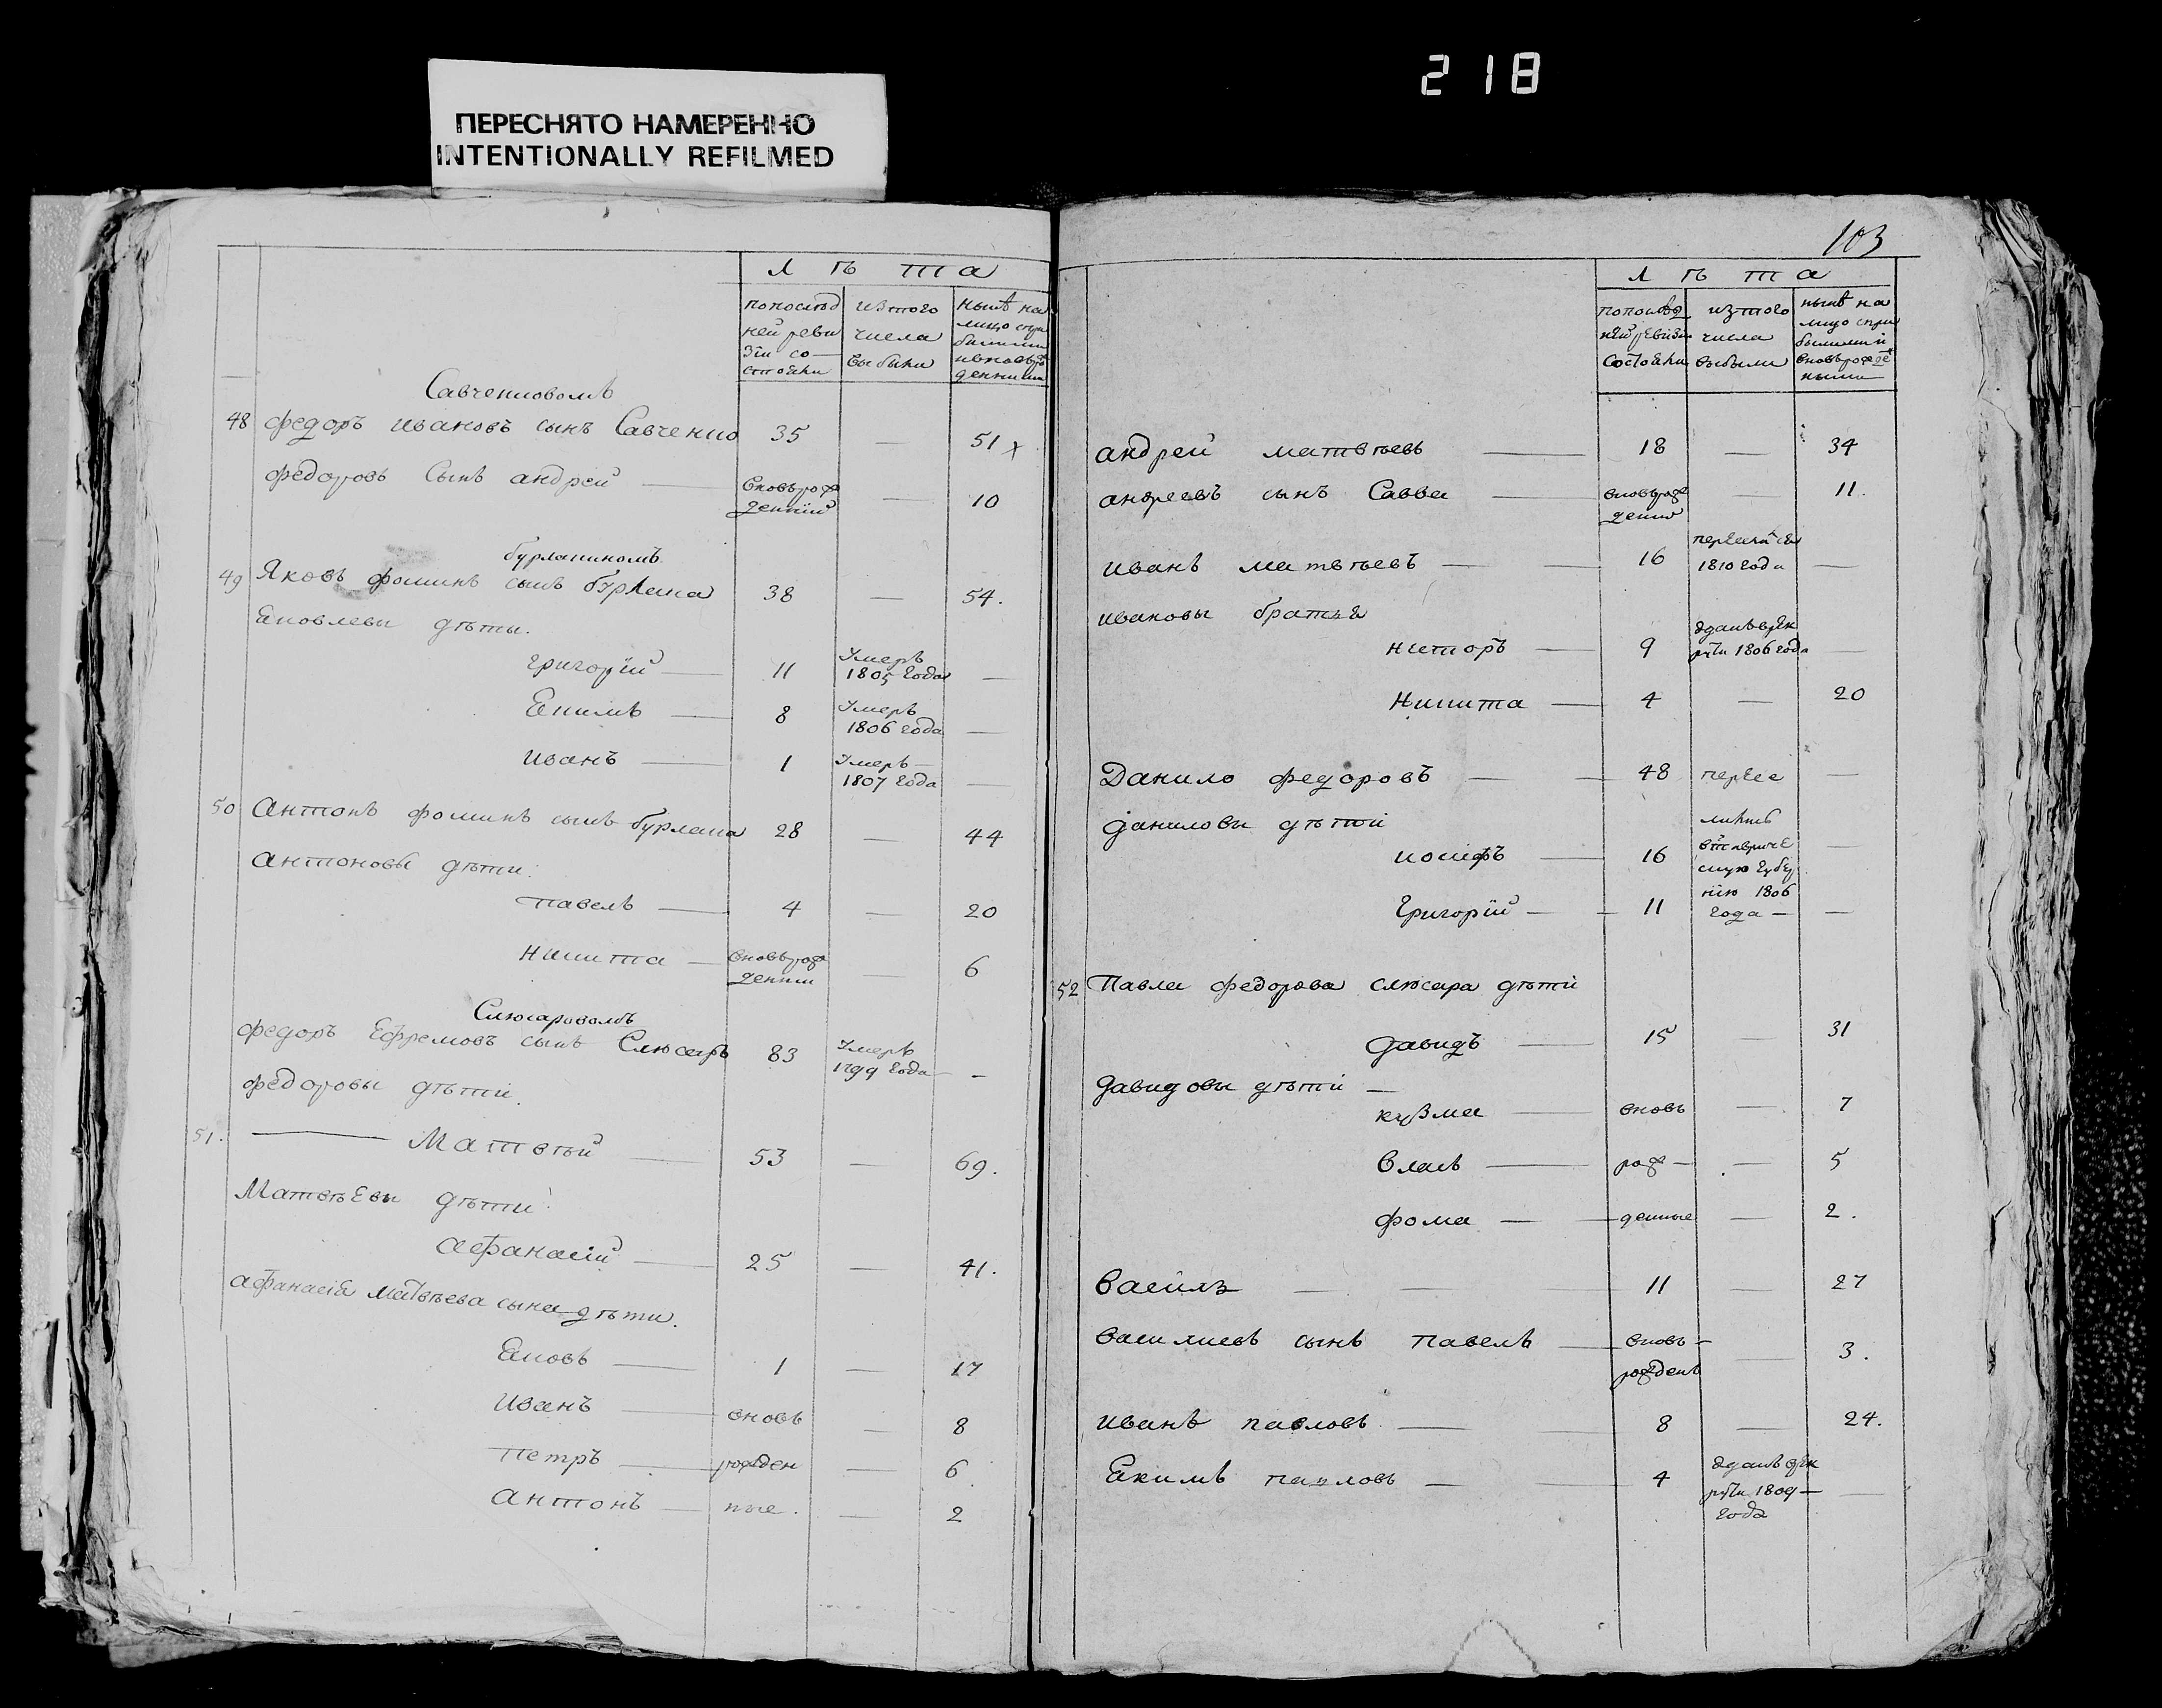 218
ПЕРЕСНЯТО НАМЕРЕННО
INTENTIONALLY REFILMED
Лѣта
попослѣд ней реви зіи со стояли
изтого числа выбыли
нынѣ на лицо спри былыми ивновьро жденными
Савченковомъ
48 федоръ ивановъ сынъ Савченко 35 — 51 х
федоровъ Сынъ андрей — вновьрож денний — 10
бурлакиномъ
49 Яковъ фоминъ сынъ бурлака 38 — 54.
Яковлевы дѣты.
григорій — 11 Умеръ 1805 года —
Екимъ — 8 Умеръ 1806 года —
иванъ — 1 Умеръ — 1807 года —
50 антонъ фоминъ сынъ бурлака 28 — 44
антоновы дѣти.
павелъ — 4 — 20
никита — вновьрож денни — 6
Слюсаровомъ
федоръ Ефремовъ сынъ Слюсарь 83 Умеръ 1799 года —
федоровы дѣти.
51. — Матвѣй — 53 — 69.
Матвѣевы дѣти
афанасій — 25 — 41.
афанасія матвѣева сына дѣти.
Яковъ — 1 — 17
иванъ — вновь — 8
петръ — рожден — 6
антонъ — ные. — 2
103
Лѣта
попослѣд ней ревизіи состояли
изтого числа выбыли
нынѣ на лицо спри былыми и вновьрожде ными
андрей матвѣевъ — 18 — 34
андреевъ сынъ Савва — вновьрож дений — 11.
иванъ матвѣевъ — 16 1810 года —
ивановы братья
нисторъ — 9 зданъ врек руты 1806 года —
никита — 4 — 20
Данило федоровъ — 48 пересе —
даниловы дѣти
лились
иосифъ — 16 втавриче скую губер —
нію 1806
григорій — 11 года — —
52 Павла федорова слюсара дѣти
давидъ — 15 — 31
давидовы дѣти —
кузма — вновь — 7
власъ — рож — — 5
фома — денные — 2.
василь — 11 — 27
василиевъ сынъ павелъ — вновь — рожденъ — 3.
иванъ павловъ — 8 — 24.
Екимъ павловъ — 4 зданъ врек руты 1809 — года —